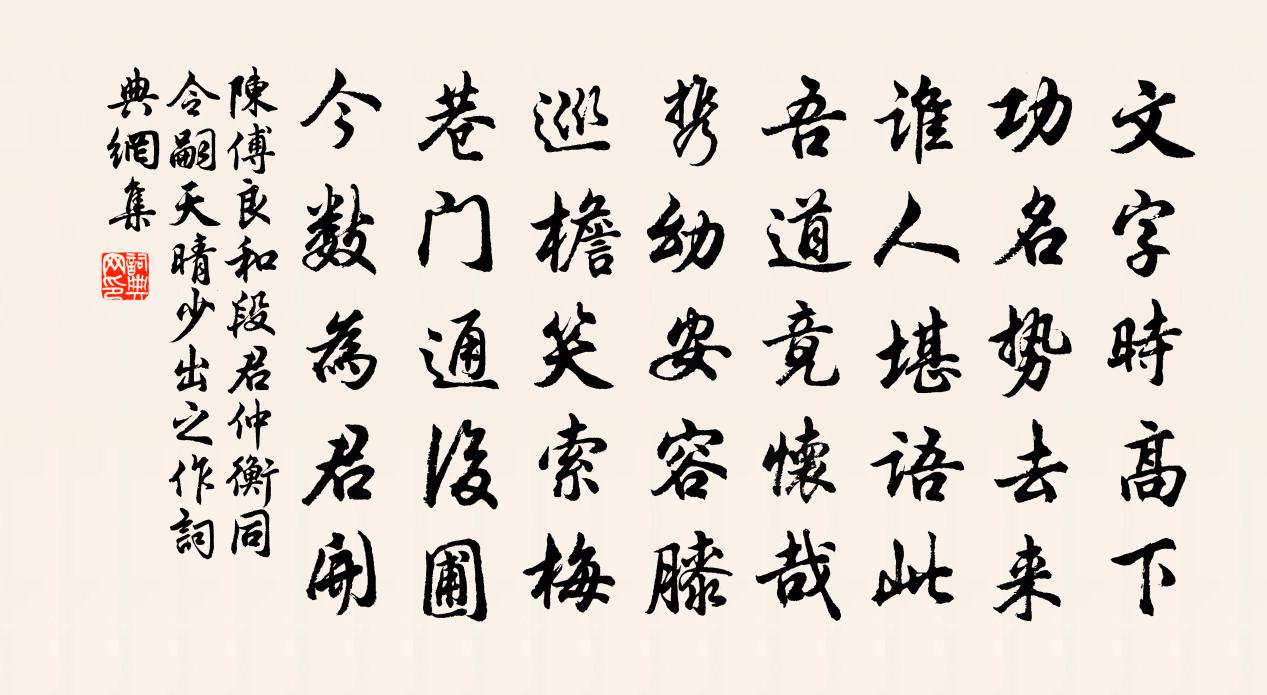 文字時高下
功名势去来
谁人堪语此
吾道竟懷哉
携幼安容膝
巡檐笑索梅
巷门通後圃
今数為君開
陳傅良和段君仲衡同
令嗣天晴少出之作詞
典網集
詞典网印